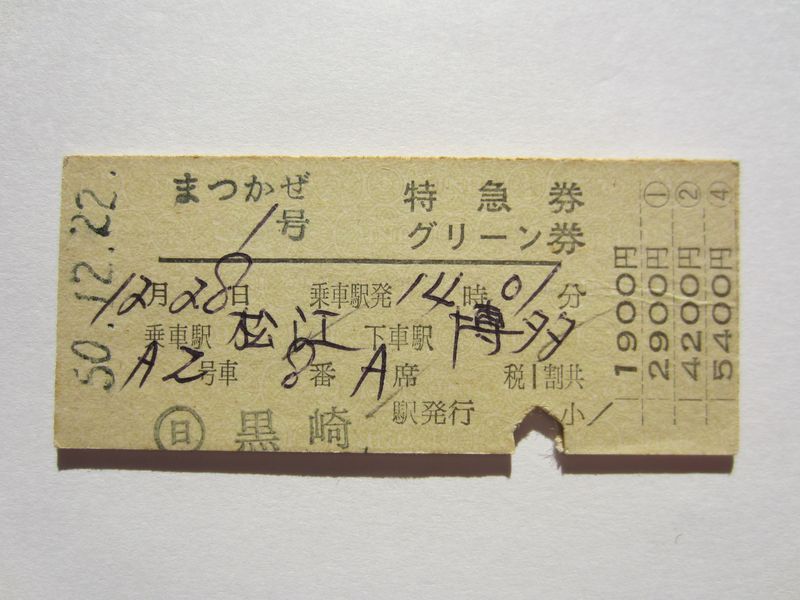 50.12.22.
まつかぜ 特急券
1号 グリーン券
12月28日 乗車駅発 14時01分
乗車駅 松江 下車駅 博多
A2号車 8番A席 税1割共
駅発行 小
㊐ 黒崎
1900円
2900円 ①
4200円 ②
5400円 ④